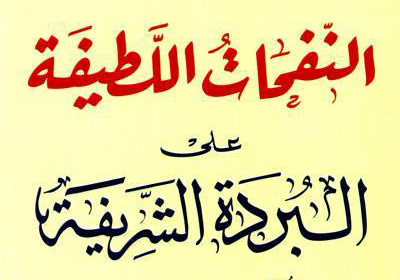 النّفحاتُ اللّطيفَة
على
البُردَة الشّرِيفَة